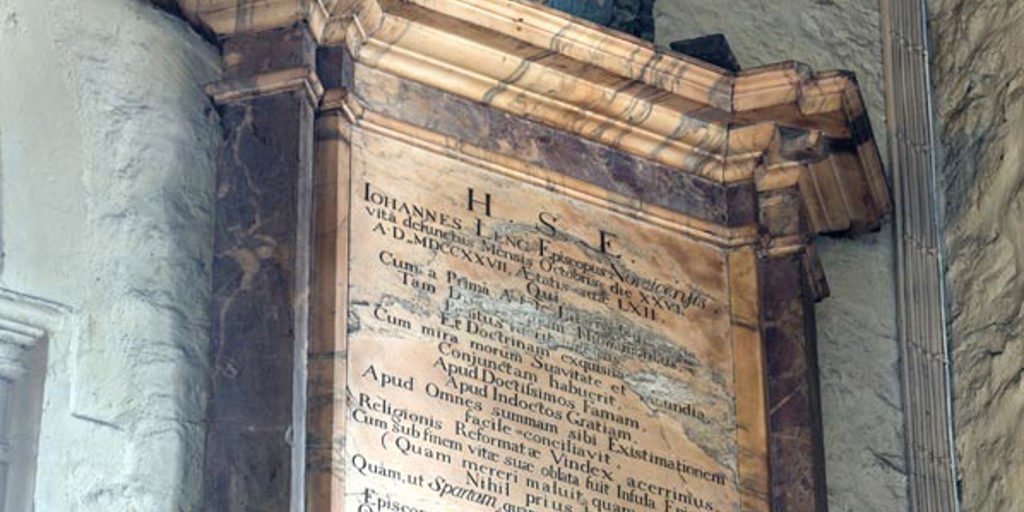 H. S. E.
IOHANNES LENG Episcopus Norvicensis
vitâ defunctus Mensis Octobris die XXVI
A.D. MDCCXXVII, Ætatis suæ LXII
Qui
Cum a Prima
Tam
Et Doctrinam exquisita
Cum mira morum Suavitate et
Conjunctam habuerit
Apud Doctissimos Famam
Apud Indoctos Gratiam
Apud Omnes summam sibi Existimationem
facile conciliavit
Religionis Reformatæ Vindex acerrimus
Cum sub finem vitæ suæ oblata fuit Infula
(Quam mereri maluit quam
Nihil prius
Quàm, ut Spartam